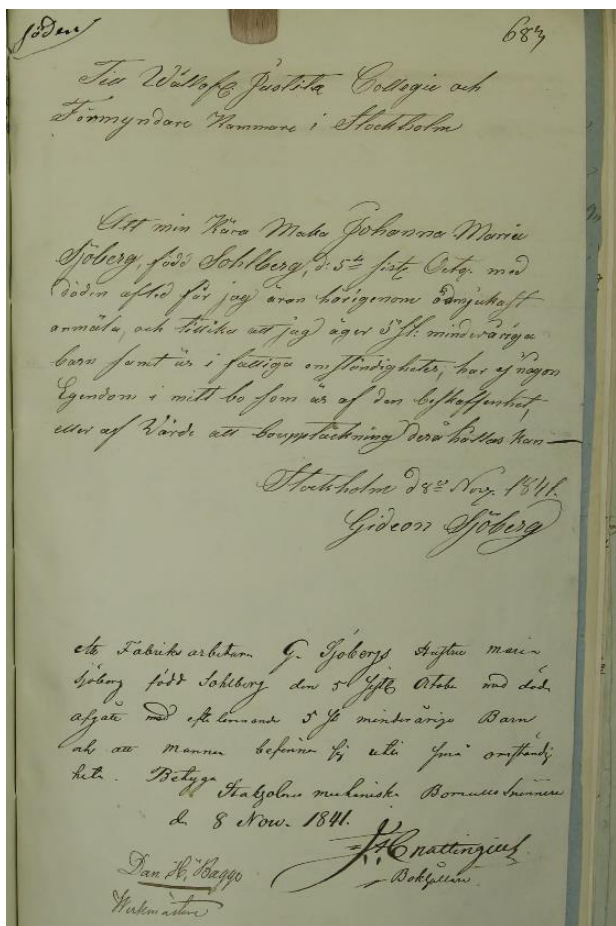 Söder
683
Till Wällofl. Justitiæ Collegie och
Förmyndare Kammare i Stockholm
Att min Kära Maka Johanna Maria
Sjöberg, född Sohlberg, d: 5te sistl. Octbr. med
döden aflidit får jag äran härigenom ödmjukast
anmäla, och tillika att jag äger 5 st: minderåriga
barn samt är i fattiga omständigheter, har ej någon
Egendom i mitt bo som är af den beskaffenhet,
eller af Värde att bouppteckning derå hållas kan
Stockholm d 8de Nov. 1841.
Gideon Sjöberg
Att Fabriks arbetaren G. Sjöbergs Hustru Maria
Sjöberg född Sohlberg den 5 sistl. Octobr med döden
afgått med efterlemnande 5 st minderåriga Barn
och att mannen befinner sig uti små omständig
heter. Betyga
mechaniska Bomulls Spinneri
d. 8 Nov. 1841.
Cnattingius
Bokhållare.
Dan. H. Bagge
Werkmästare